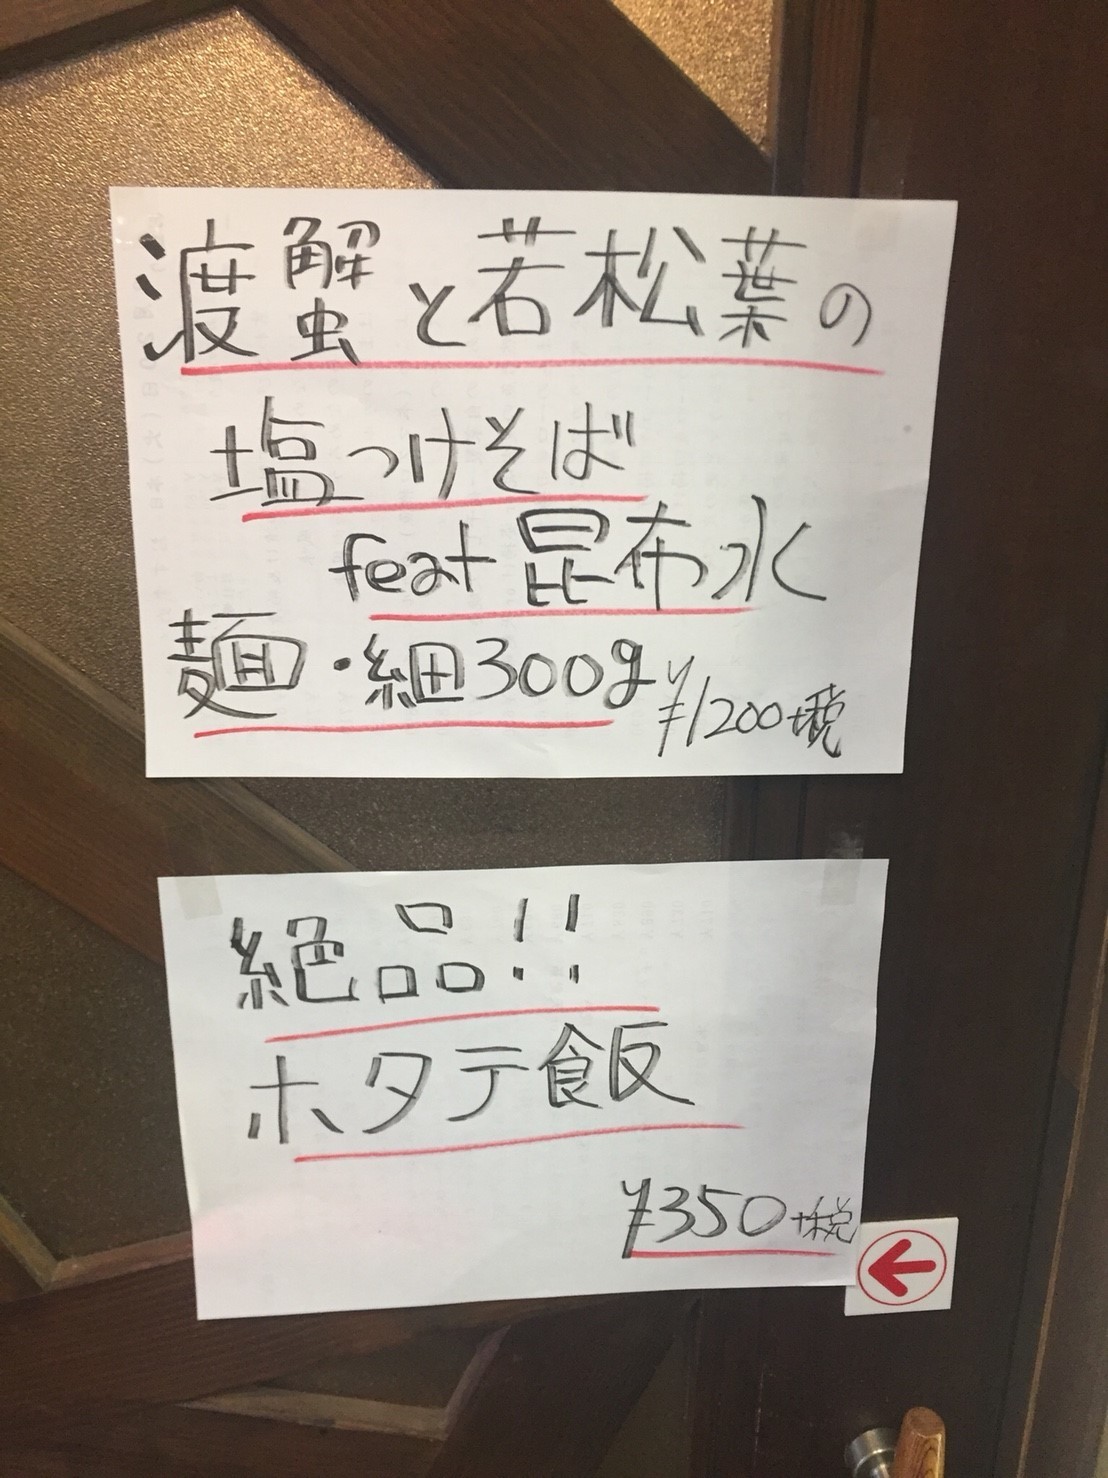 渡蟹と若松葉の
塩つけそば
feat 昆布水
麺・細300g
¥1200+税
絶品!!
ホタテ飯
¥350+税